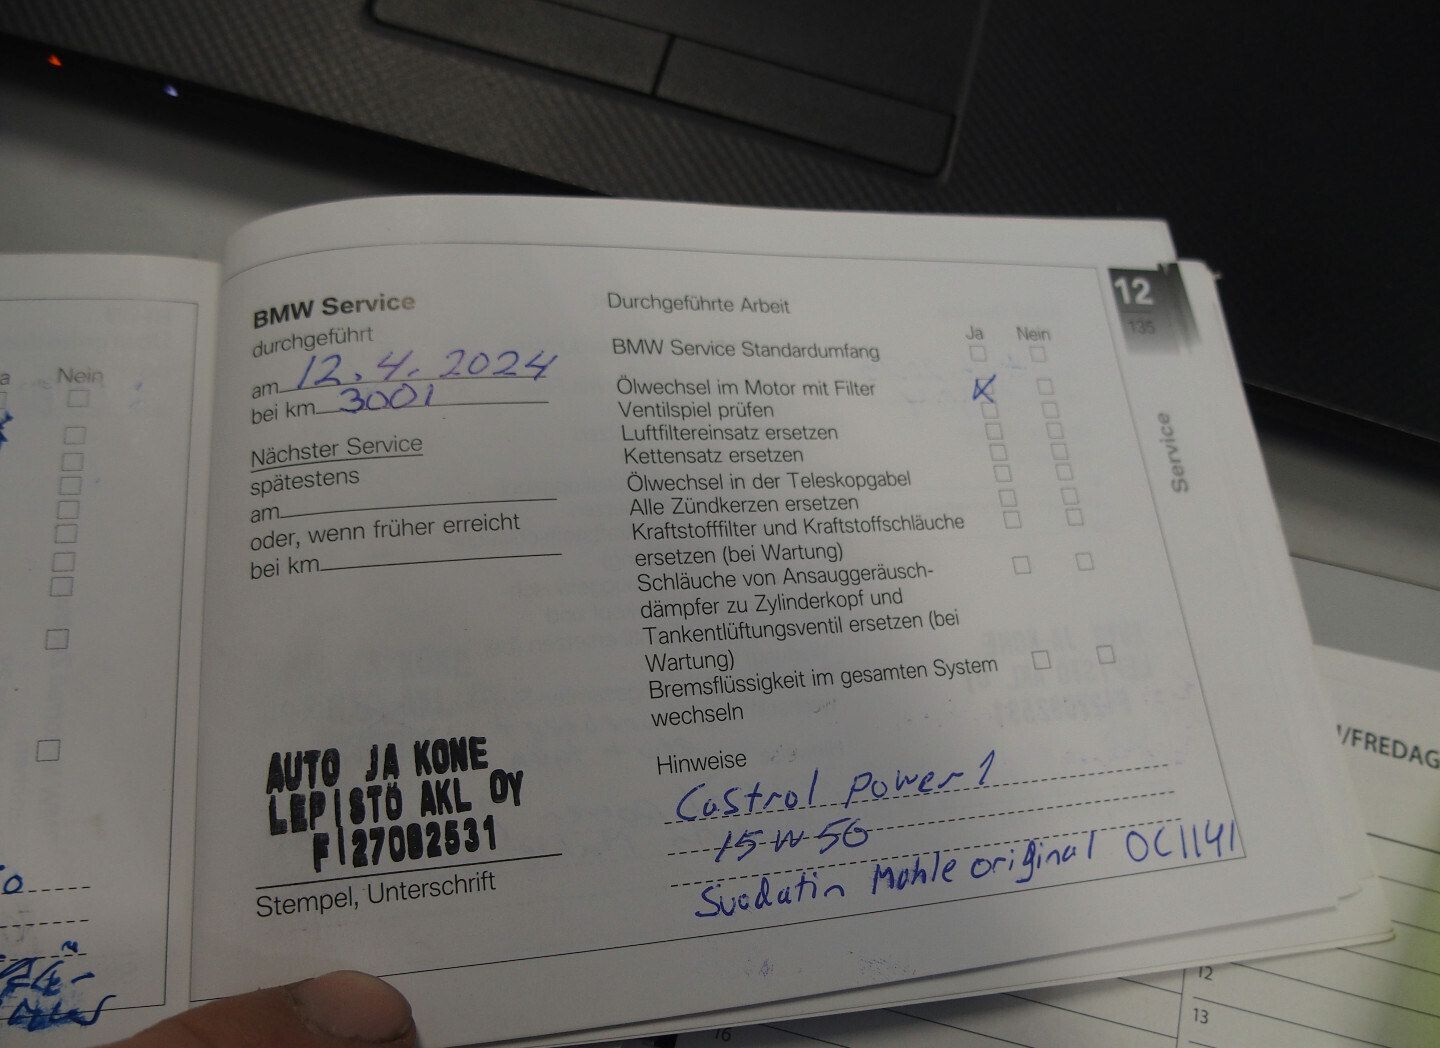 a Nein
BMW Service
durchgeführt
am 12.4.2024
bei km 3001
Nächster Service
spätestens
am
oder, wenn früher erreicht
bei km
AUTO JA KONE
LEPISTÖ AKL OY
FI27082531
Stempel, Unterschrift
Durchgeführte Arbeit
Ja Nein
BMW Service Standardumfang
Ölwechsel im Motor mit Filter
Ventilspiel prüfen
Luftfiltereinsatz ersetzen
Kettensatz ersetzen
Ölwechsel in der Teleskopgabel
Alle Zündkerzen ersetzen
Kraftstofffilter und Kraftstoffschläuche
ersetzen (bei Wartung)
Schläuche von Ansauggeräusch-
dämpfer zu Zylinderkopf und
Tankentlüftungsventil ersetzen (bei
Wartung)
Bremsflüssigkeit im gesamten System
wechseln
Hinweise
Castrol Power 1
15-W-50
Suodatin Mahle original OC1141
12
135
Service
/FREDAG
12
13
16